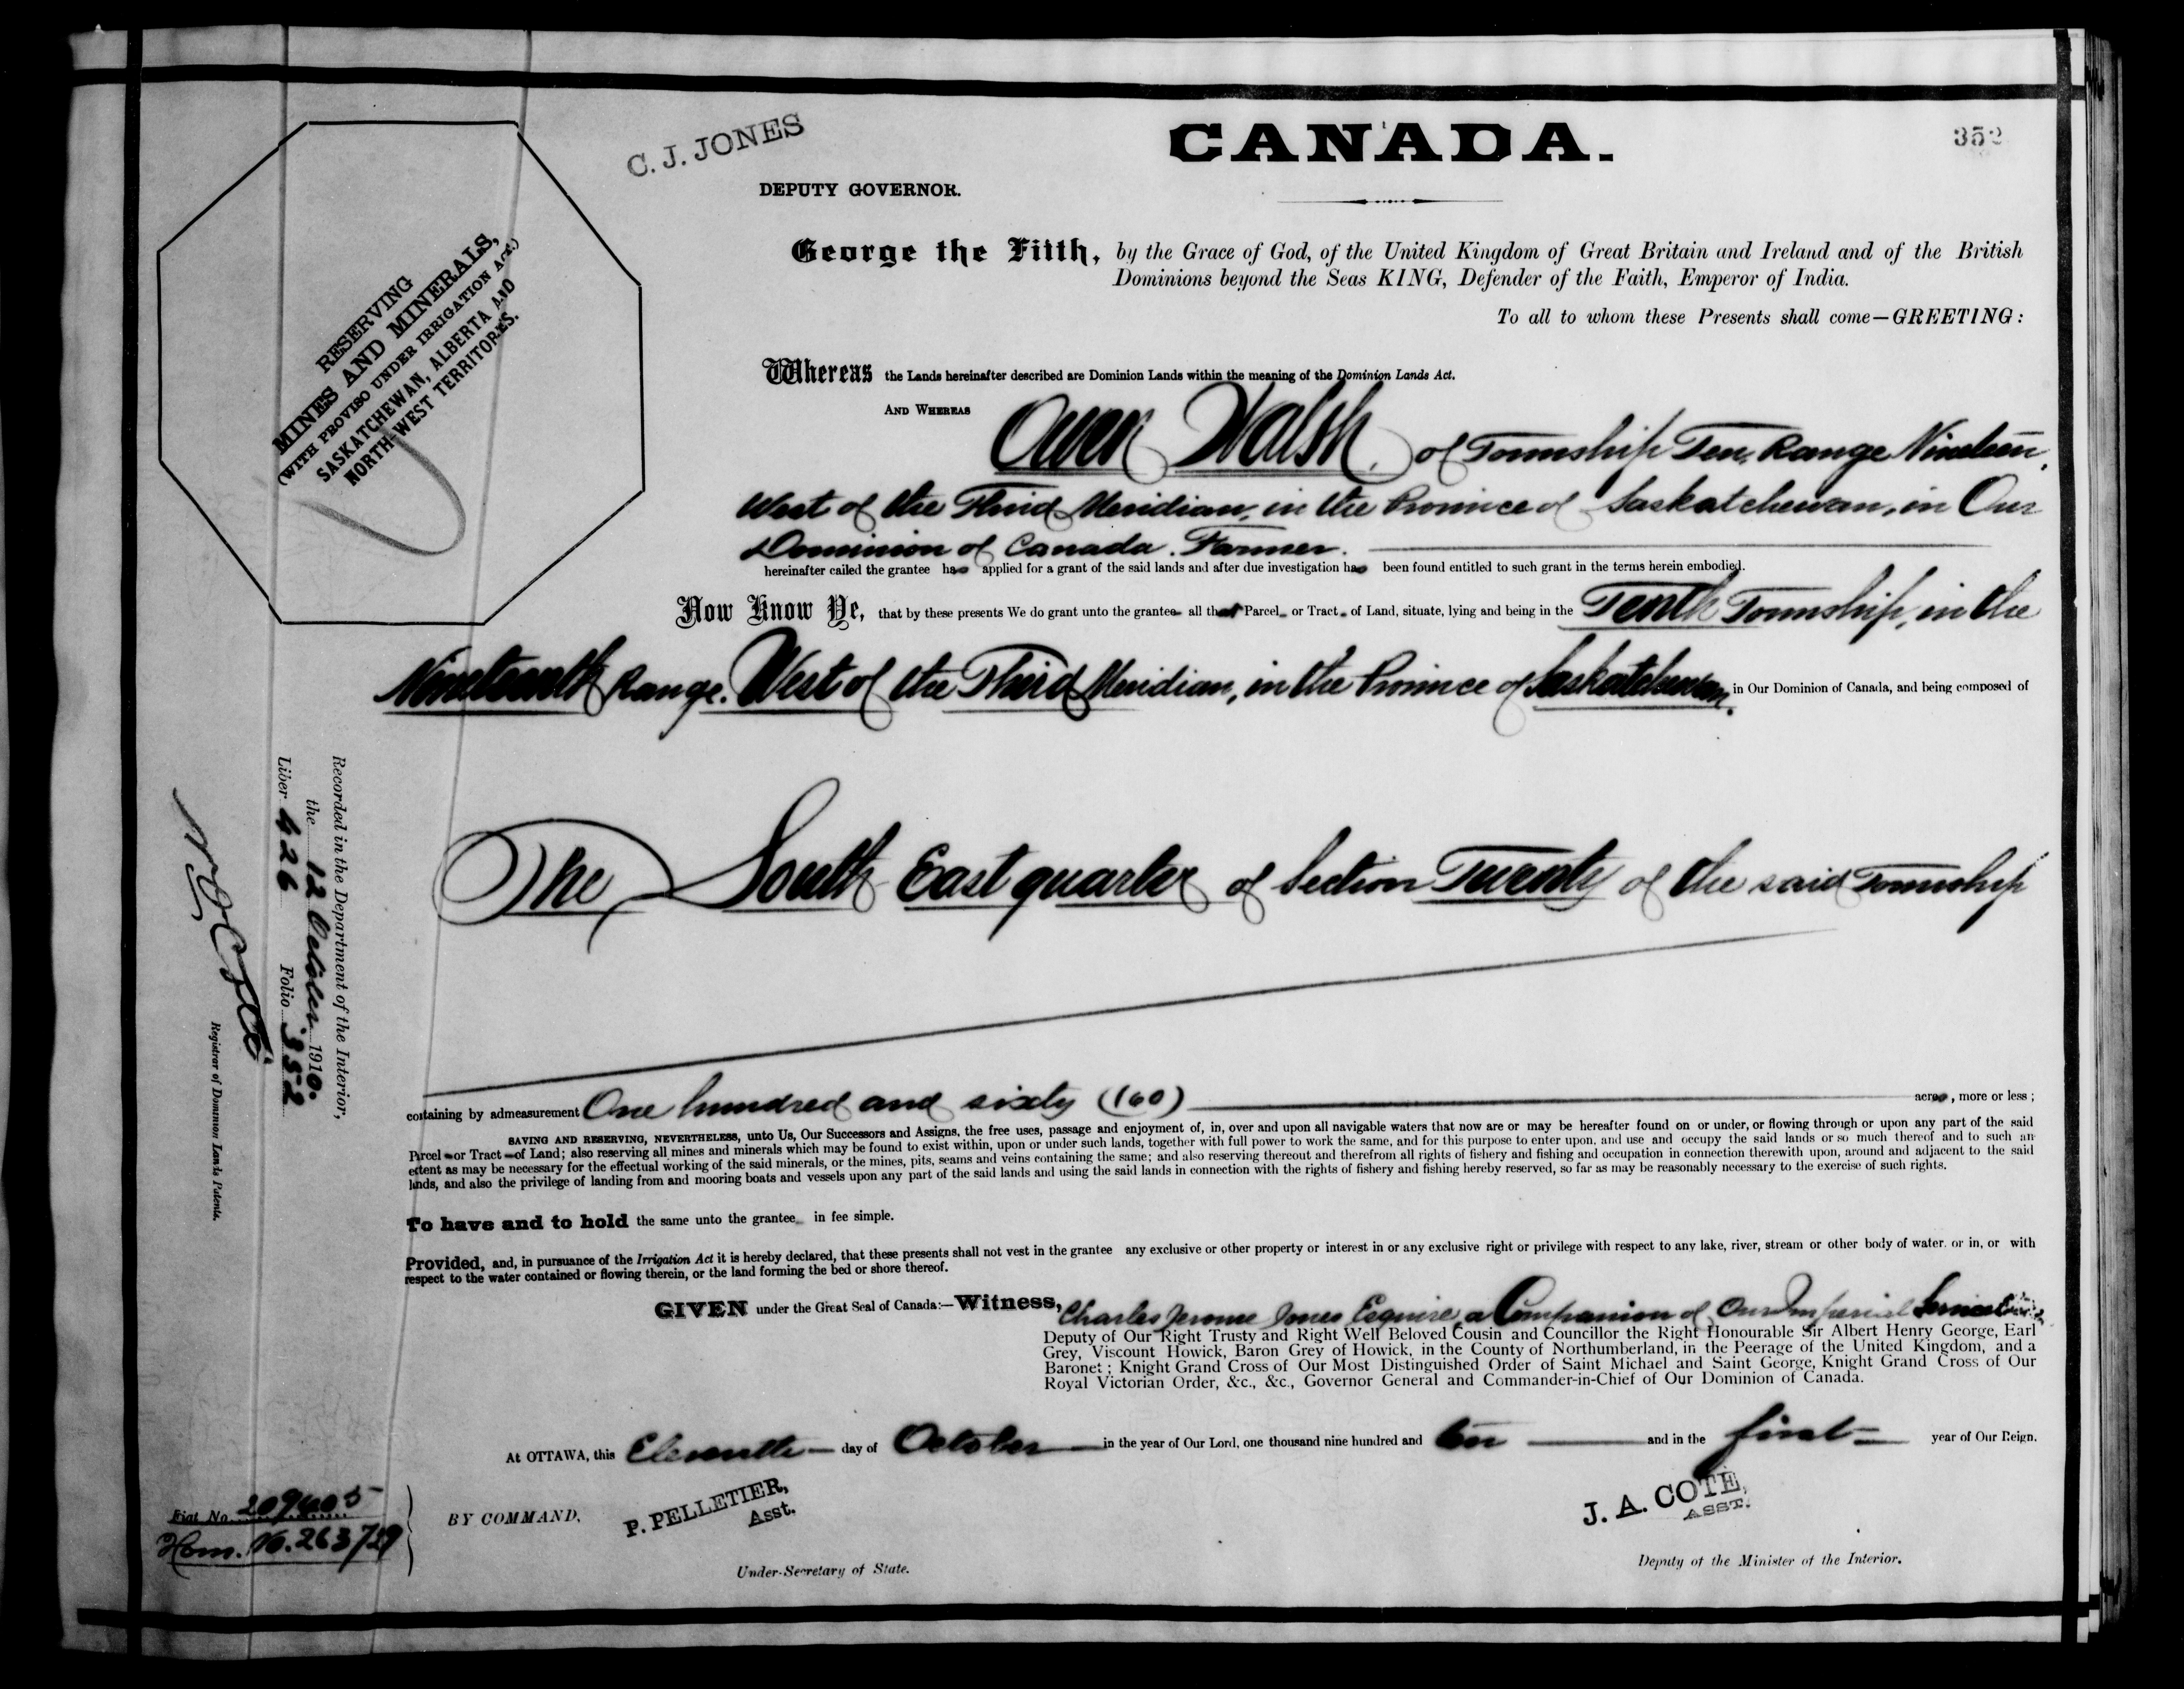 C. J. JONES
CANADA.
352
DEPUTY GOVERNOR.
George the Fifth, by the Grace of God, of the United Kingdom of Great Britain and Ireland and of the British
Dominions beyond the Seas KING, Defender of the Faith, Emperor of India.
To all to whom these Presents shall come—GREETING:
RESERVING
MINES AND MINERALS,
(WITH PROVISO UNDER IRRIGATION ACT.)
SASKATCHEWAN, ALBERTA AND
NORTH-WEST TERRITORIES.
Whereas the Lands hereinafter described are Dominion Lands within the meaning of the Dominion Lands Act.
AND WHEREAS Owen Walsh, of Township Ten, Range Nineteen,
West of the Third Meridian, in the Province of Saskatchewan, in Our
Dominion of Canada. Farmer.
hereinafter called the grantee has applied for a grant of the said lands and after due investigation has been found entitled to such grant in the terms herein embodied.
Now Know Ye, that by these presents We do grant unto the grantee all that Parcel or Tract of Land, situate, lying and being in the Tenth Township, in the
Nineteenth Range, West of the Third Meridian, in the Province of Saskatchewan, in Our Dominion of Canada, and being composed of
The South East quarter of Section Twenty of the said Township
containing by admeasurement One hundred and sixty (160) acres, more or less;
SAVING AND RESERVING, NEVERTHELESS, unto Us, Our Successors and Assigns, the free uses, passage and enjoyment of, in, over and upon all navigable waters that now are or may be hereafter found on or under, or flowing through or upon any part of the said
Parcel or Tract of Land; also reserving all mines and minerals which may be found to exist within, upon or under such lands, together with full power to work the same, and for this purpose to enter upon, and use and occupy the said lands or so much thereof and to such an
extent as may be necessary for the effectual working of the said minerals, or the mines, pits, seams and veins containing the same; and also reserving thereout and therefrom all rights of fishery and fishing and occupation in connection therewith upon, around and adjacent to the said
lands, and also the privilege of landing from and mooring boats and vessels upon any part of the said lands and using the said lands in connection with the rights of fishery and fishing hereby reserved, so far as may be reasonably necessary to the exercise of such rights.
To have and to hold the same unto the grantee in fee simple.
Provided, and, in pursuance of the Irrigation Act it is hereby declared, that these presents shall not vest in the grantee any exclusive or other property or interest in or any exclusive right or privilege with respect to any lake, river, stream or other body of water, or in, or with
respect to the water contained or flowing therein, or the land forming the bed or shore thereof.
GIVEN under the Great Seal of Canada:—Witness, Charles Jerome Jones Esquire, a Companion of Our Imperial Service
Deputy of Our Right Trusty and Right Well Beloved Cousin and Councillor the Right Honourable Sir Albert Henry George, Earl
Grey, Viscount Howick, Baron Grey of Howick, in the County of Northumberland, in the Peerage of the United Kingdom, and a
Baronet; Knight Grand Cross of Our Most Distinguished Order of Saint Michael and Saint George, Knight Grand Cross of Our
Royal Victorian Order, &c., &c., Governor General and Commander-in-Chief of Our Dominion of Canada.
At OTTAWA, this Eleventh day of October in the year of Our Lord, one thousand nine hundred and ten and in the first year of Our Reign.
BY COMMAND,
P. PELLETIER,
Asst.
Under-Secretary of State.
J. A. COTÉ,
ASST.
Deputy of the Minister of the Interior.
Recorded in the Department of the Interior,
the 12 October 1910.
Liber 426 Folio 352
Registrar of Dominion Lands Patents.
Fiat No. 209405
Hom. No. 263729